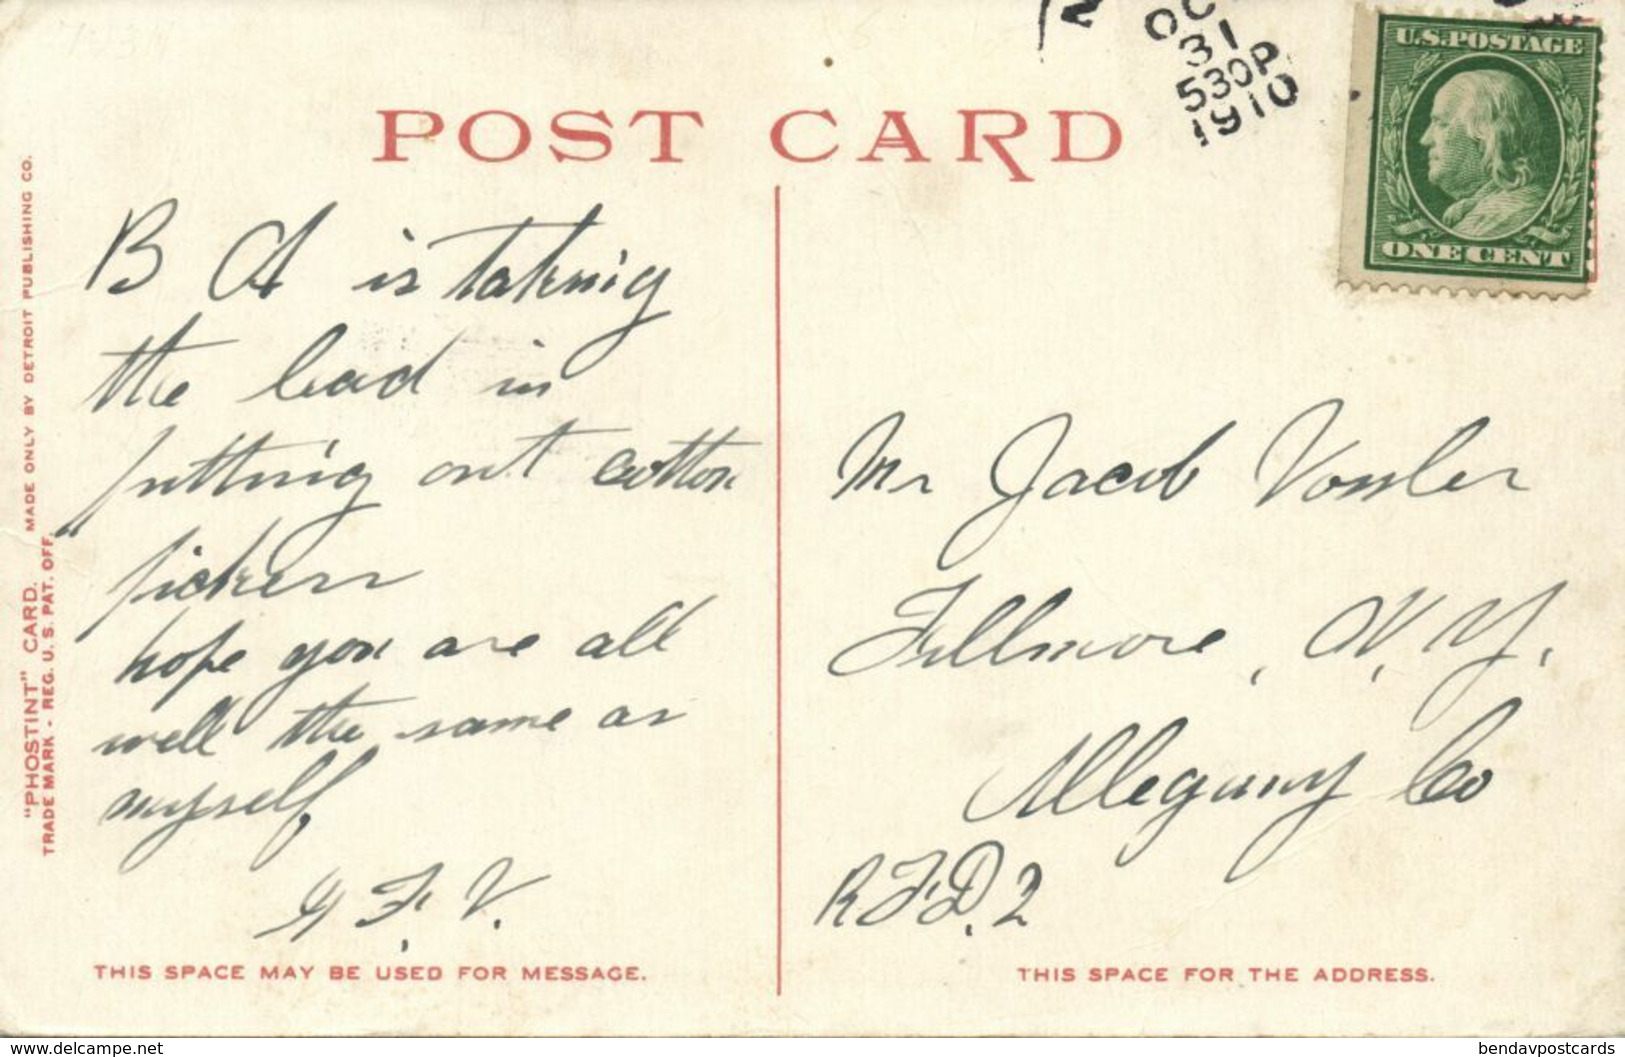 OC
31
530P
1910
U.S. POSTAGE
ONE CENT
POST CARD
"PHOSTINT" CARD. MADE ONLY BY DETROIT PUBLISHING CO.
TRADE MARK - REG. U. S. PAT. OFF.
B A is taking
the lead in
putting out cotton
pickers
hope you are all
well the same as
myself
G. F. V.
THIS SPACE MAY BE USED FOR MESSAGE.
Mr Jacob Vossler
Fillmore, N. Y.
Allegany Co
R F D. 2
THIS SPACE FOR THE ADDRESS.
www.delcampe.net
bendavpostcards